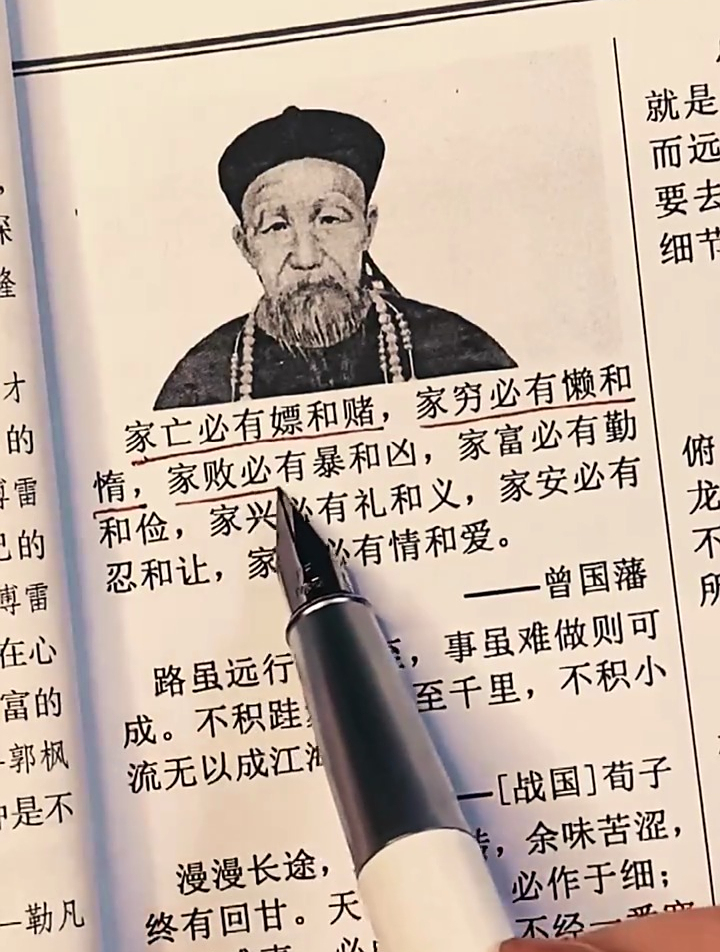 深
隆
才
的
傅雷
己的
傅雷
在心
富的
郭枫
中是不
—勒凡
家亡必有嫖和赌，家穷必有懒和
惰，家败必有暴和凶，家富必有勤
和俭，家兴必有礼和义，家安必有
忍和让，家 必有情和爱。
——曾国藩
路虽远行 ，事虽难做则可
成。不积跬 至千里，不积小
流无以成江
—[战国]荀子
漫漫长途， ，余味苦涩，
终有回甘。天 必作于细；
就是
而远
要去
细节
俯
龙
不
所